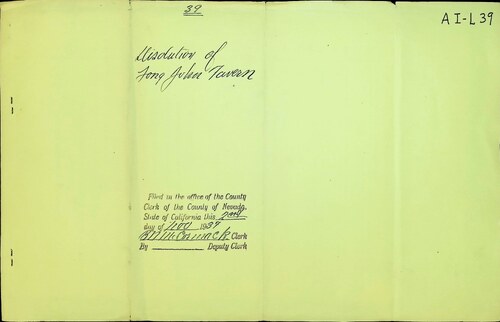 39
AI-L39
Disolution of
Long Johns Tavern
Filed in the office of the County
Clark of the County of Nevada,
State of California this
day of Nov 1937
R N McCormack Clark
By Deputy Clark